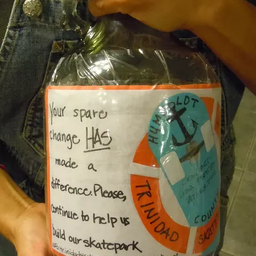 Your spare
change HAS
made a
difference. Please,
continue to help us
build our skatepark
HUMBOLDT
COUNTY
TRINIDAD